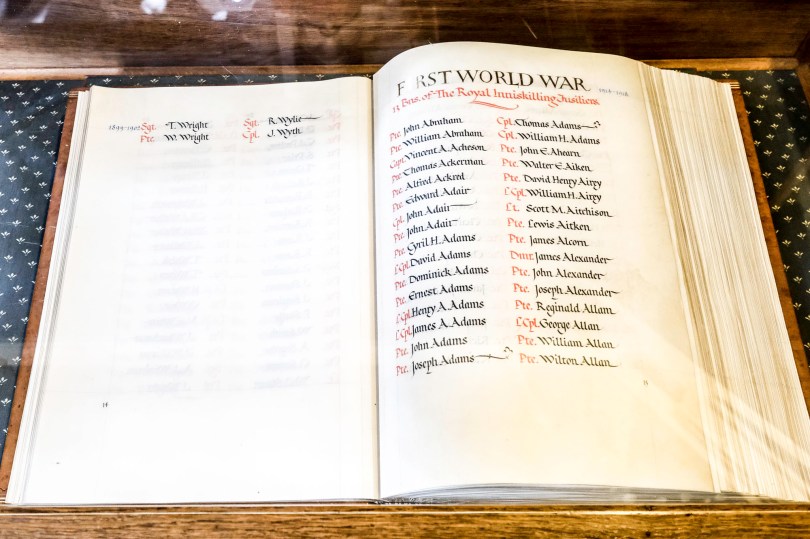 1899-1902 Sgt. T. Wright Sgt. R. Wylie
Pte. W. Wright Cpl. J. Wyth
14
FIRST WORLD WAR 1914-1918
13 Bns. of The Royal Inniskilling Fusiliers.
Pte. John Abraham
Pte. William Abraham
Capt. Vincent A. Acheson
Pte. Thomas Ackerman
Pte. Alfred Ackred
Pte. Edward Adair
Cpl. John Adair
Pte. John Adair
Pte. Cyril H. Adams
L.Cpl. David Adams
Pte. Dominick Adams
Pte. Ernest Adams
L.Cpl. Henry A. Adams
L.Cpl. James A. Adams
Pte. John Adams
Pte. Joseph Adams
Cpl. Thomas Adams
Cpl. William H. Adams
Pte. John E. Ahearn
Pte. Walter E. Aiken
Pte. David Henry Airey
L.Cpl. William H. Airey
Lt. Scott M. Aitchison
Pte. Lewis Aitken
Pte. James Alcorn
Dmr. James Alexander
Pte. John Alexander
Pte. Joseph Alexander
Pte. Reginald Allam
L.Cpl. George Allan
Pte. William Allan
Pte. Wilton Allan